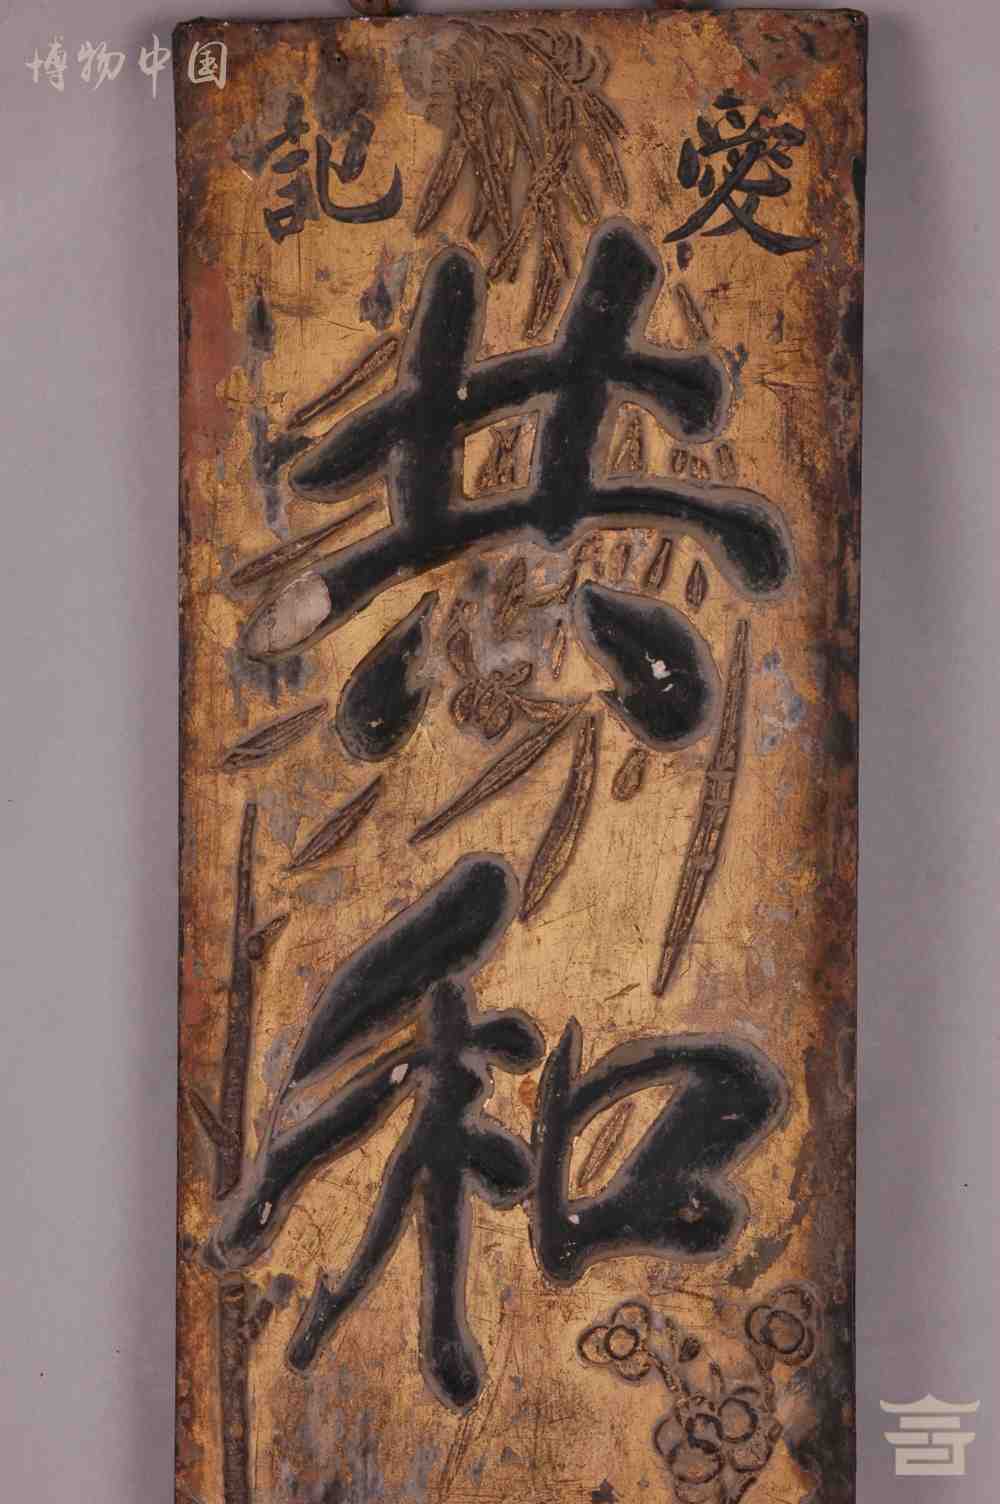 博物中国
愛記
共和